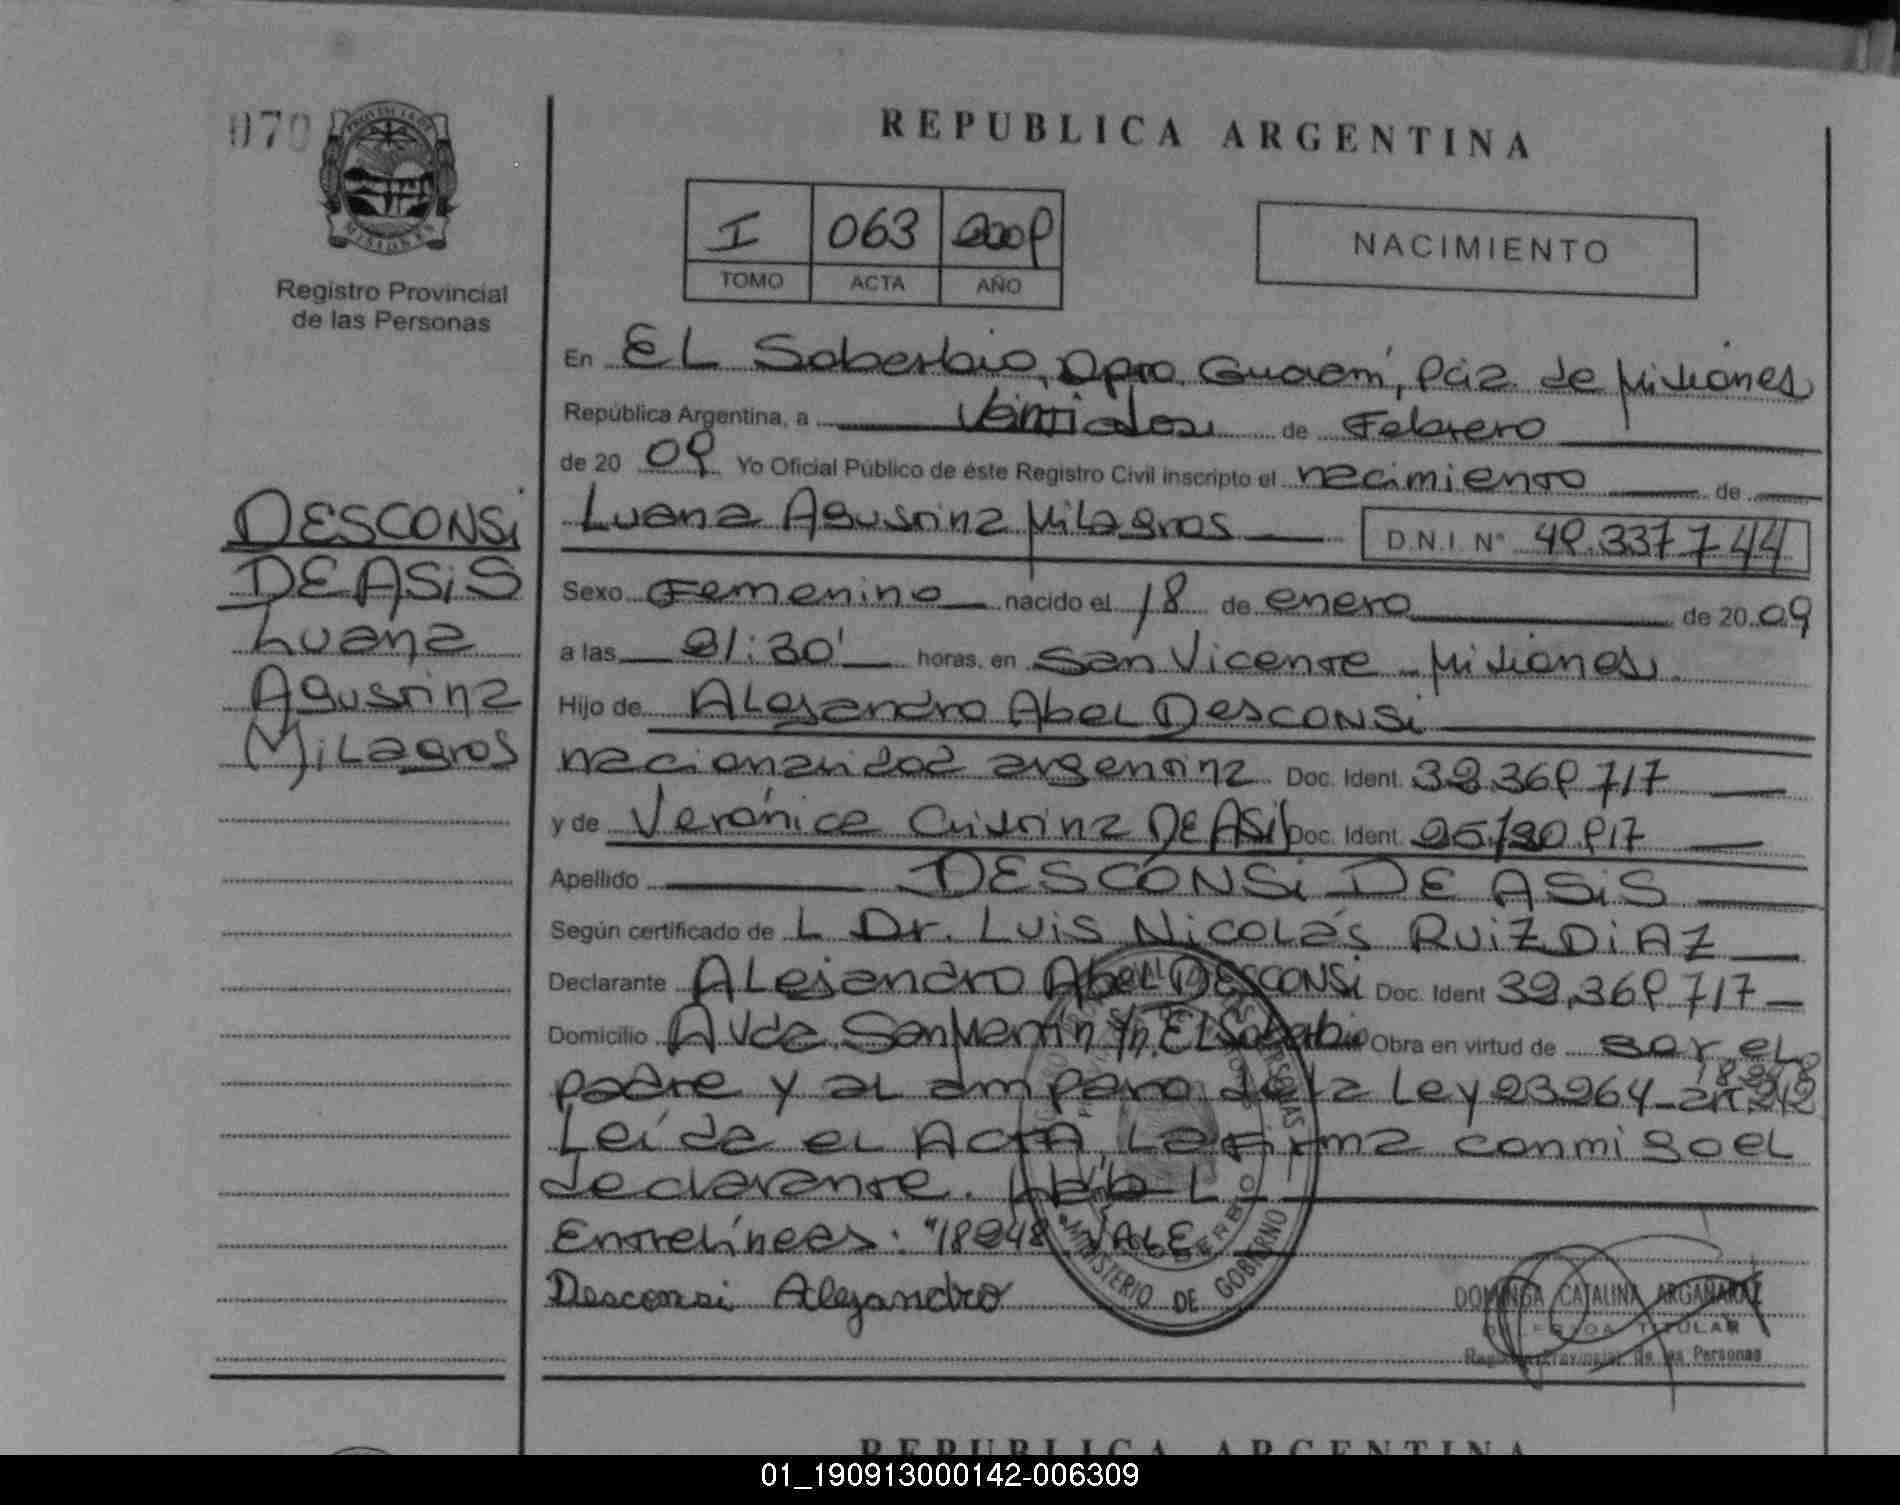 070
PROVINCIA DE
MISIONES
Registro Provincial
de las Personas
REPUBLICA ARGENTINA
I 063 2009
TOMO ACTA AÑO
NACIMIENTO
En EL Soberbio, Dpto. Guaraní, Pcia. de Misiones
República Argentina, a Veintidos de Febrero
de 20 09 Yo Oficial Público de éste Registro Civil inscripto el nacimiento de
Luana Agustina Milagros D.N.I. Nº 49.337.744
Sexo Femenino nacido el 18 de enero de 20 09
a las 21:30' horas. en San Vicente - Misiones.
Hijo de Alejandro Abel Desconsi
nacionalidad argentina Doc. Ident. 32.369.717
y de Verónica Cristina DE ASiS Doc. Ident. 25.120.917
Apellido DESCONSi DE ASiS
Según certificado de L Dr. Luis Nicolás RUiZ DiAZ
Declarante Alejandro Abel DESCONSi Doc. Ident 32.369.717
Domicilio Avda. San Martín s/n. El Soberbio Obra en virtud de ser el
padre y al amparo de la Ley 23264 - 18248 art 242
Leída el Acta, La firma conmigo el
declarante.
Entrelíneas: "18248 VALE
Desconsi Alejandro
MINISTERIO DE GOBIERNO
DOMINGA CATALINA ARGAÑARAZ
DELEGADA TITULAR
Registro Provincial de las Personas
DESCONSi
DE ASiS
Luana
Agustina
Milagros
REPUBLICA ARGENTINA
01_190913000142-006309